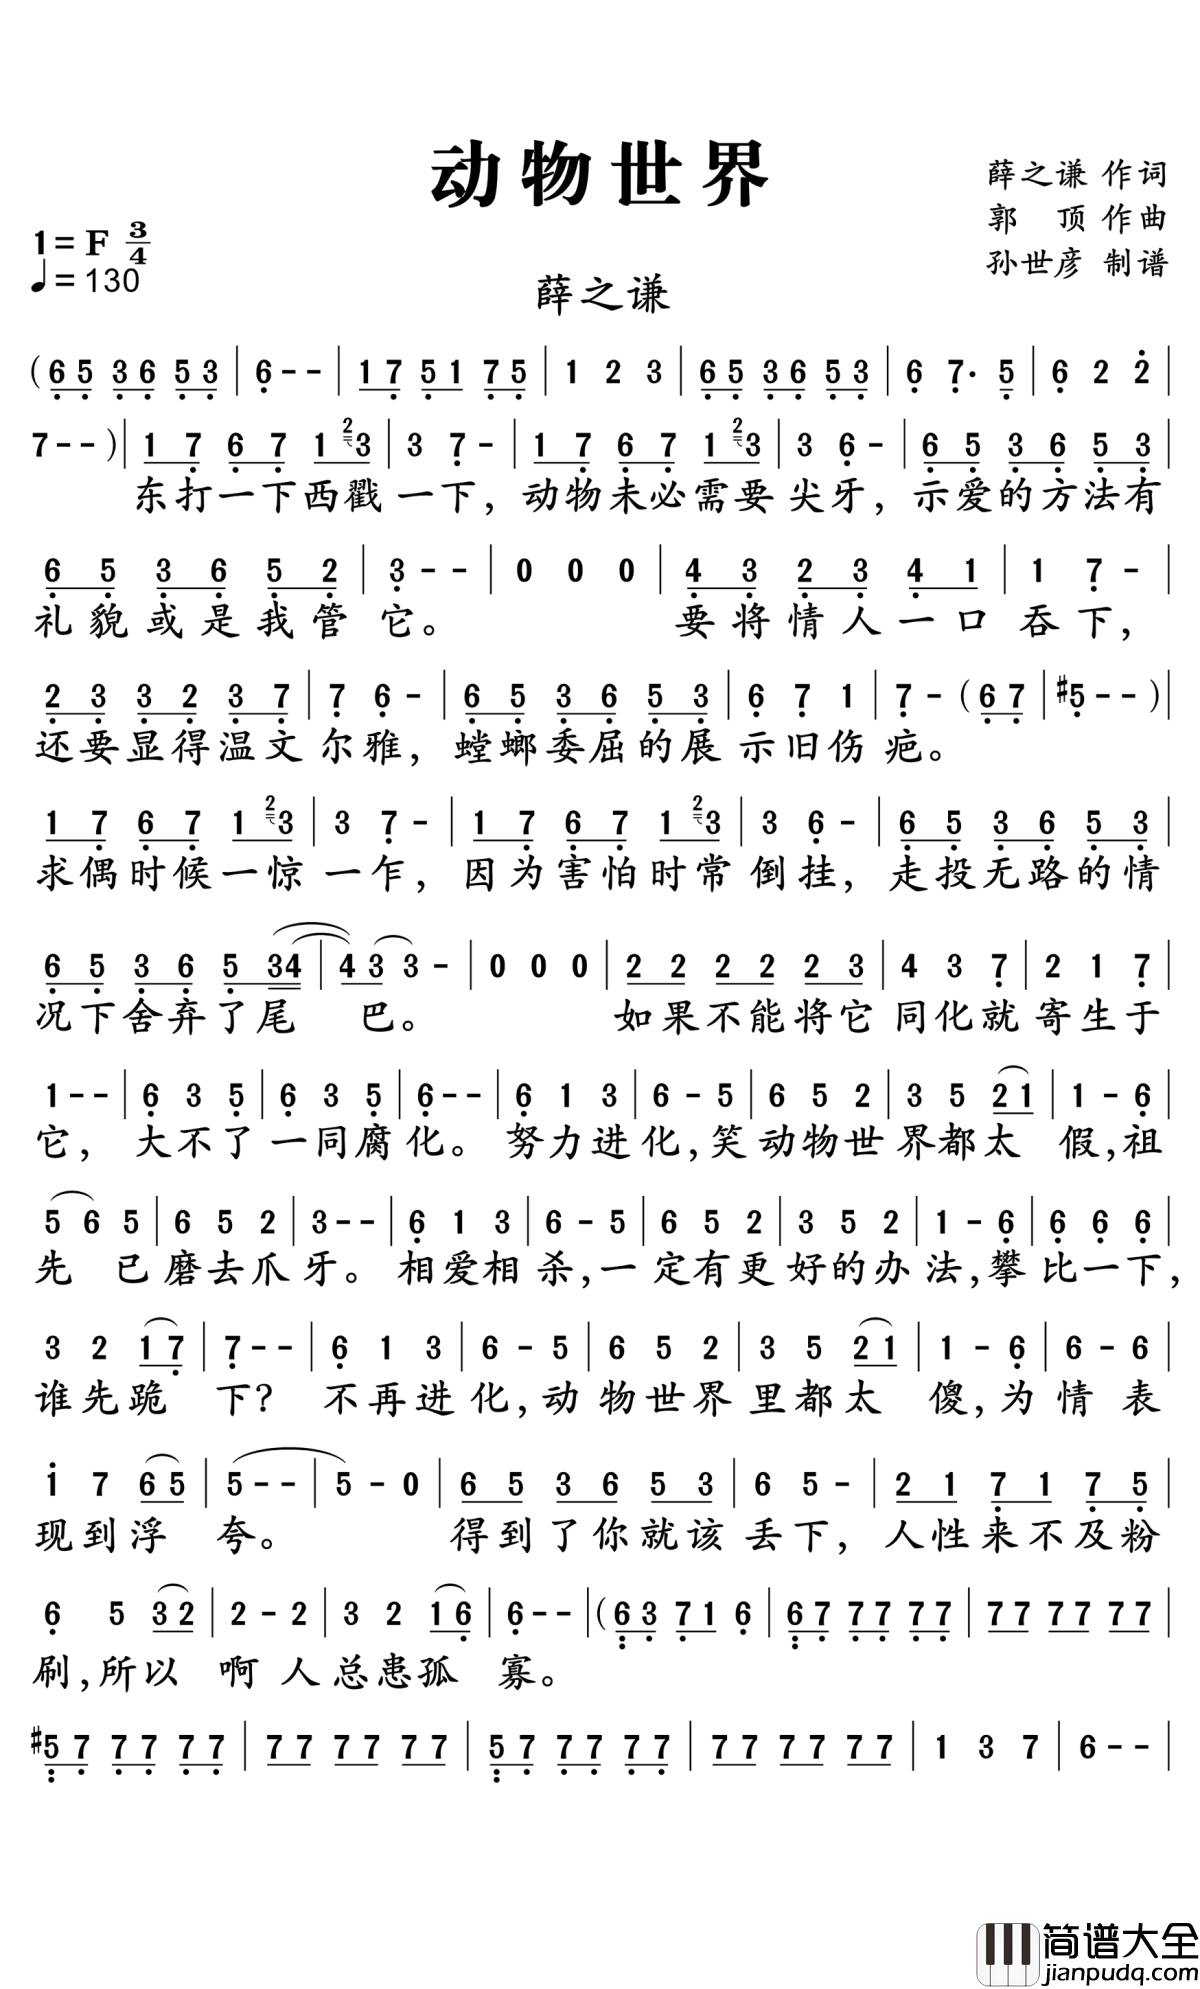 动物世界
薛之谦 作词
郭 顶 作曲
孙世彦 制谱
1=F 3/4
♩=130
薛之谦
(6 5 3 6 5 3 | 6 - - | 1 7 5 1 7 5 | 1 2 3 | 6 5 3 6 5 3 | 6 7· 5 | 6 2 2 |
7 - - ) | 1 7 6 7 1 2 3 | 3 7 - | 1 7 6 7 1 2 3 | 3 6 - | 6 5 3 6 5 3 |
东打一下西戳一下，动物未必需要尖牙，示爱的方法有
6 5 3 6 5 2 | 3 - - | 0 0 0 | 4 3 2 3 4 1 | 1 7 - |
礼貌或是我管它。 要将情人一口吞下，
2 3 3 2 3 7 | 7 6 - | 6 5 3 6 5 3 | 6 7 1 | 7 - (6 7 | #5 - - ) |
还要显得温文尔雅，螳螂委屈的展示旧伤疤。
1 7 6 7 1 2 3 | 3 7 - | 1 7 6 7 1 2 3 | 3 6 - | 6 5 3 6 5 3 |
求偶时候一惊一乍，因为害怕时常倒挂，走投无路的情
6 5 3 6 5 3 4 | 4 3 3 - | 0 0 0 | 2 2 2 2 2 3 | 4 3 7 | 2 1 7 |
况下舍弃了尾 巴。 如果不能将它同化就寄生于
1 - - | 6 3 5 | 6 3 5 | 6 - - | 6 1 3 | 6 - 5 | 6 5 2 | 3 5 2 1 | 1 - 6 |
它，大不了一同腐化。努力进化，笑动物世界都太 假，祖
5 6 5 | 6 5 2 | 3 - - | 6 1 3 | 6 - 5 | 6 5 2 | 3 5 2 | 1 - 6 | 6 6 6 |
先 已磨去爪牙。相爱相杀，一定有更好的办法，攀比一下，
3 2 1 7 | 7 - - | 6 1 3 | 6 - 5 | 6 5 2 | 3 5 2 1 | 1 - 6 | 6 - 6 |
谁先跪 下？ 不再进化，动物世界里都太 傻，为情表
1 7 6 5 | 5 - - | 5 - 0 | 6 5 3 6 5 3 | 6 5 - | 2 1 7 1 7 5 |
现到浮 夸。 得到了你就该丢下，人性来不及粉
6 5 3 2 | 2 - 2 | 3 2 1 6 | 6 - - | (6 3 7 1 6 | 6 7 7 7 7 7 | 7 7 7 7 7 7 |
刷，所以 啊人总患孤 寡。
#5 7 7 7 7 7 | 7 7 7 7 7 7 | 5 7 7 7 7 7 | 7 7 7 7 7 7 | 1 3 7 | 6 - - |
简谱大全
jianpudq.com